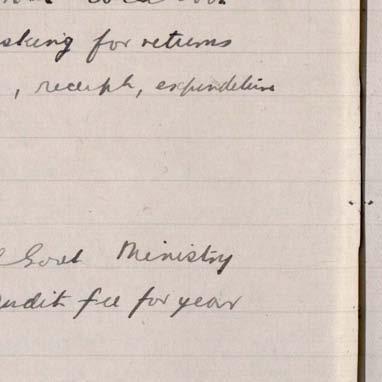 asking for returns
, receipts, expenditure
l Govt Ministry
audit fee for year